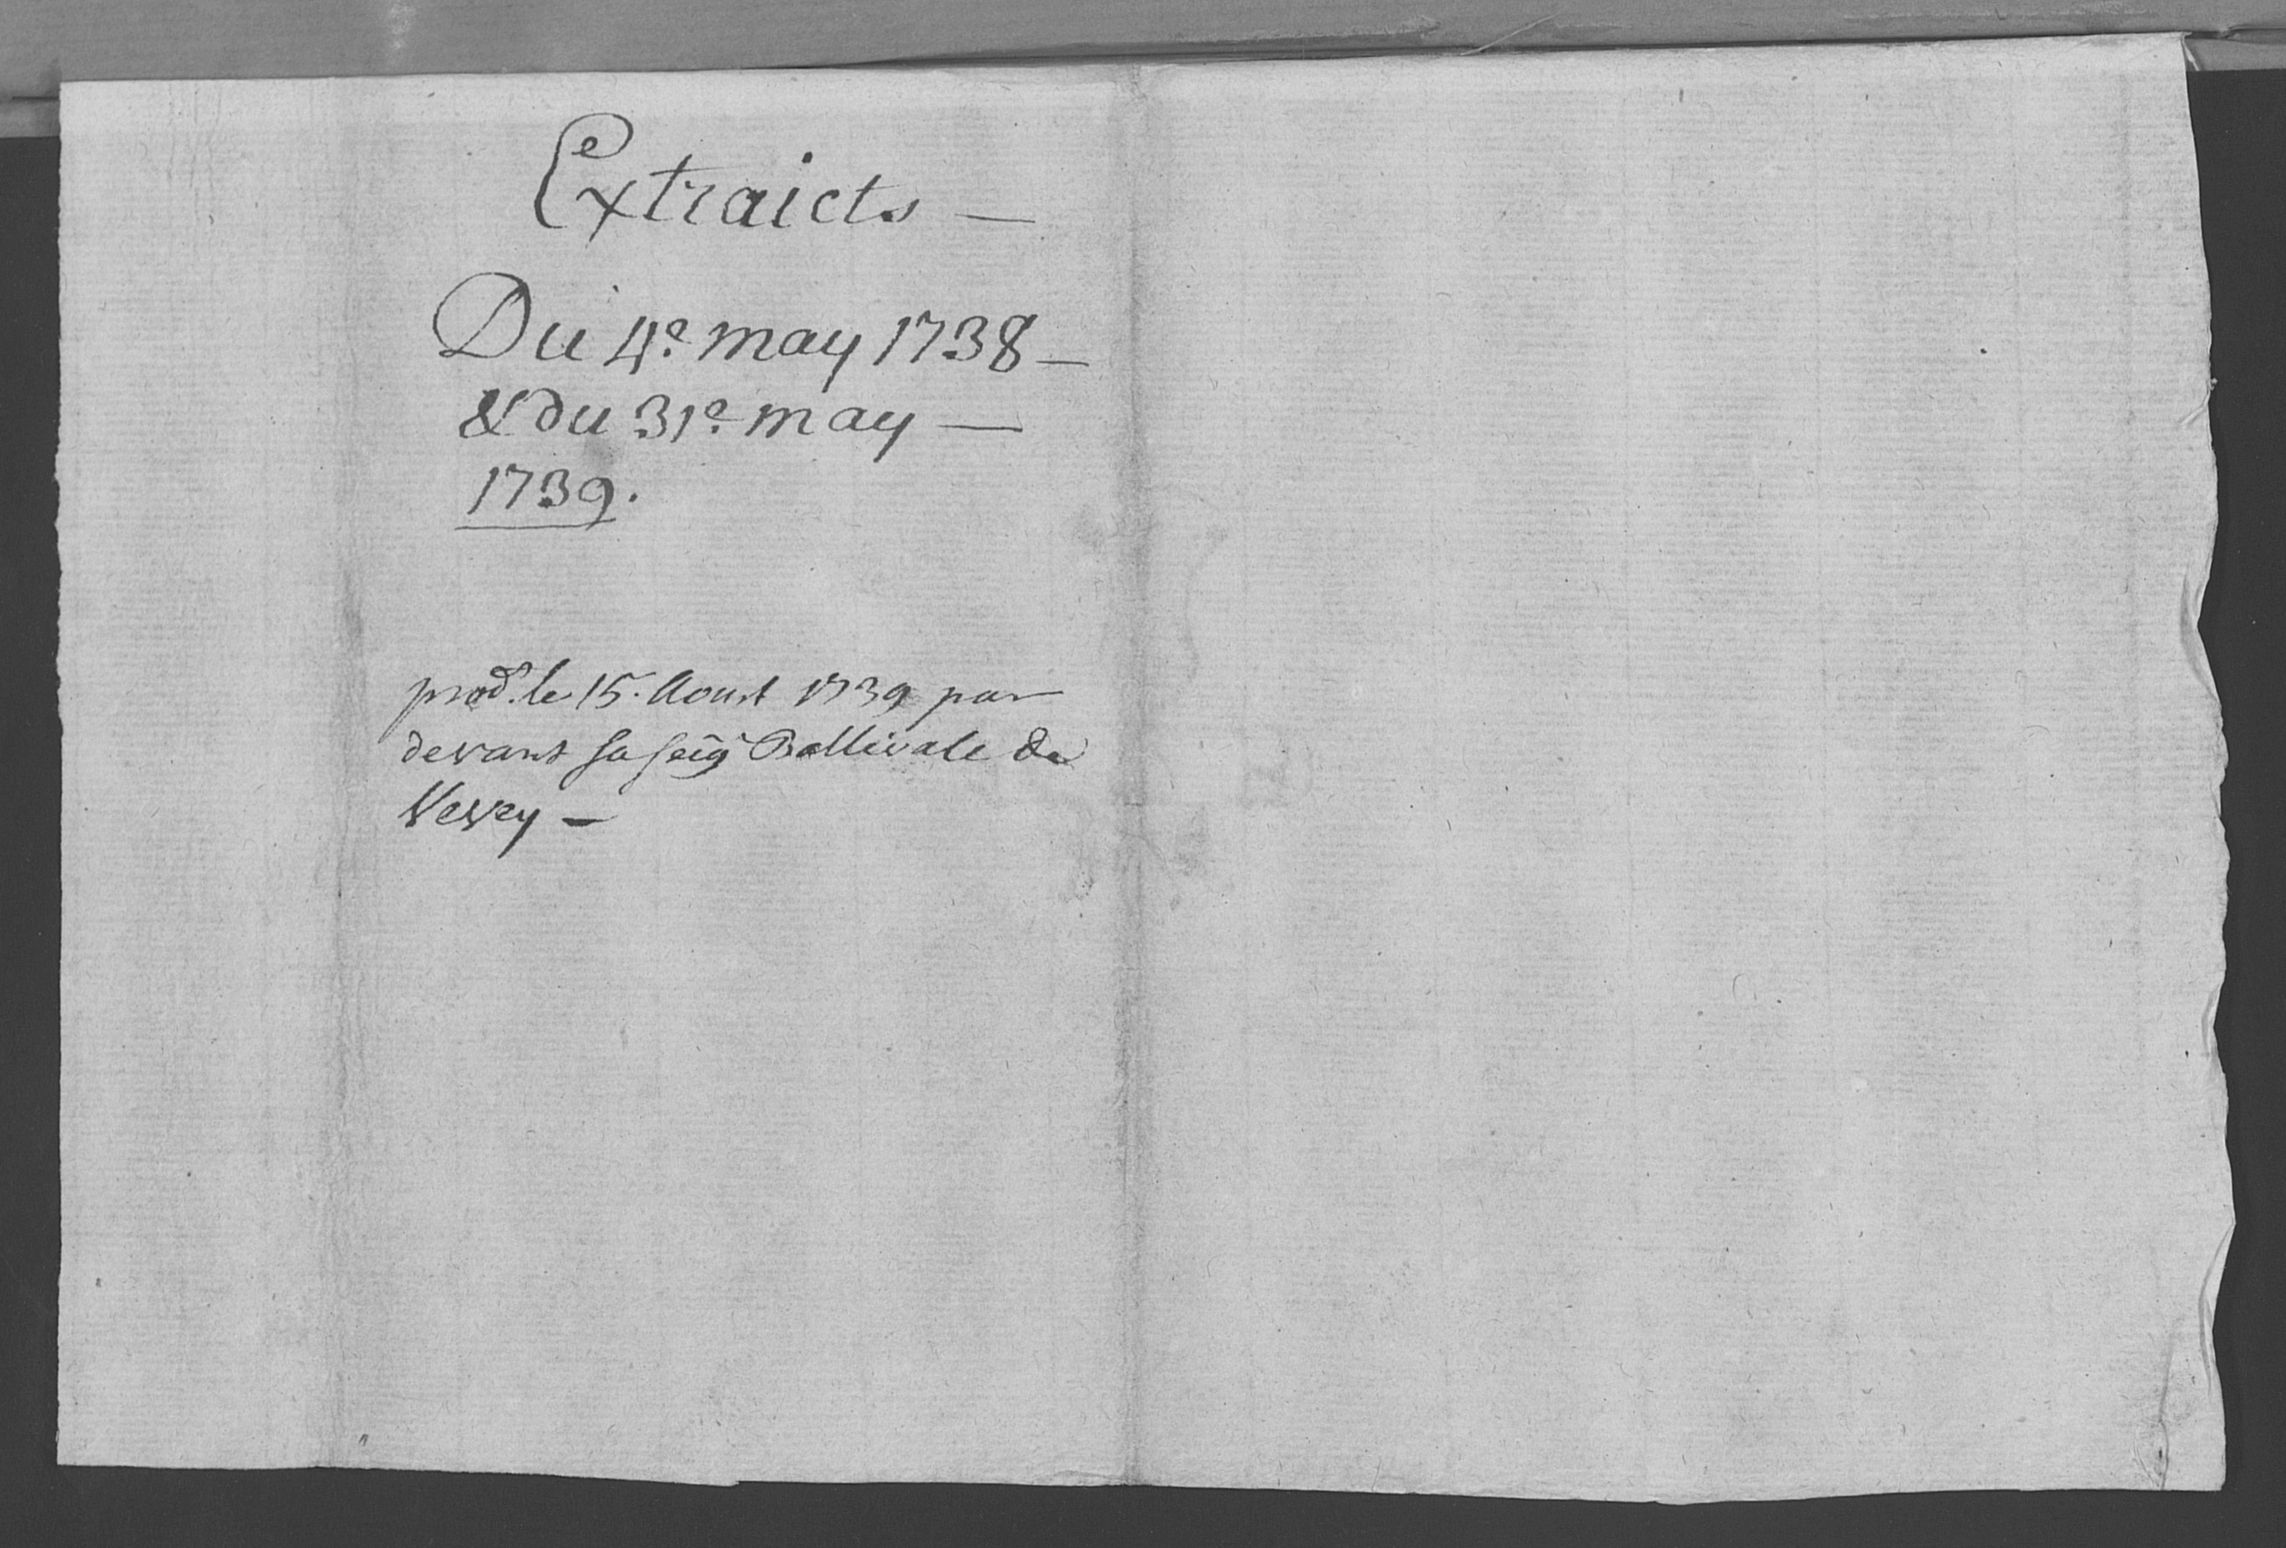 Extraicts —
Du 4.e may 1738 —
& du 31.e may —
1739.
prod.t le 15. Aoust 1739 par
devant sa seig.r Ballivale de
Vevey —